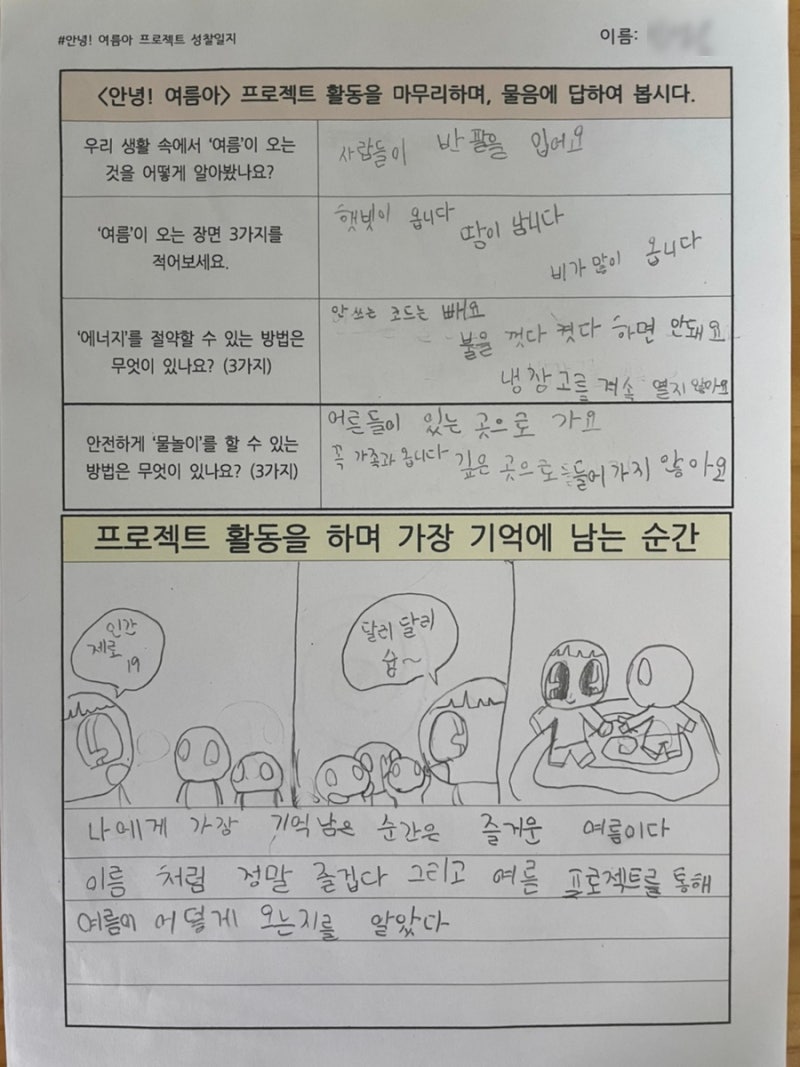 #안녕! 여름아 프로젝트 성찰일지
이름:
<안녕! 여름아> 프로젝트 활동을 마무리하며, 물음에 답하여 봅시다.
우리 생활 속에서 '여름'이 오는
것을 어떻게 알아봤나요?
사람들이 반팔을 입어요
'여름'이 오는 장면 3가지를
적어보세요.
햇빛이 옵니다
땀이 납니다
비가 많이 옵니다
'에너지'를 절약할 수 있는 방법은
무엇이 있나요? (3가지)
안 쓰는 코드는 빼요
불을 껏다 켯다 하면 안돼요
냉장고를 계속 열지 않아요
안전하게 '물놀이'를 할 수 있는
방법은 무엇이 있나요? (3가지)
어른들이 있는 곳으로 가요
꼭 가족과 옵니다
깊은 곳으로 들어가지 않아요
프로젝트 활동을 하며 가장 기억에 남는 순간
인간
제로
19
달려 달려
숍~
나에게 가장 기억 남은 순간은 즐거운 여름이다
이름 처럼 정말 즐겁다 그리고 여름 프로젝트를 통해
여름이 어떻게 오는지를 알았다